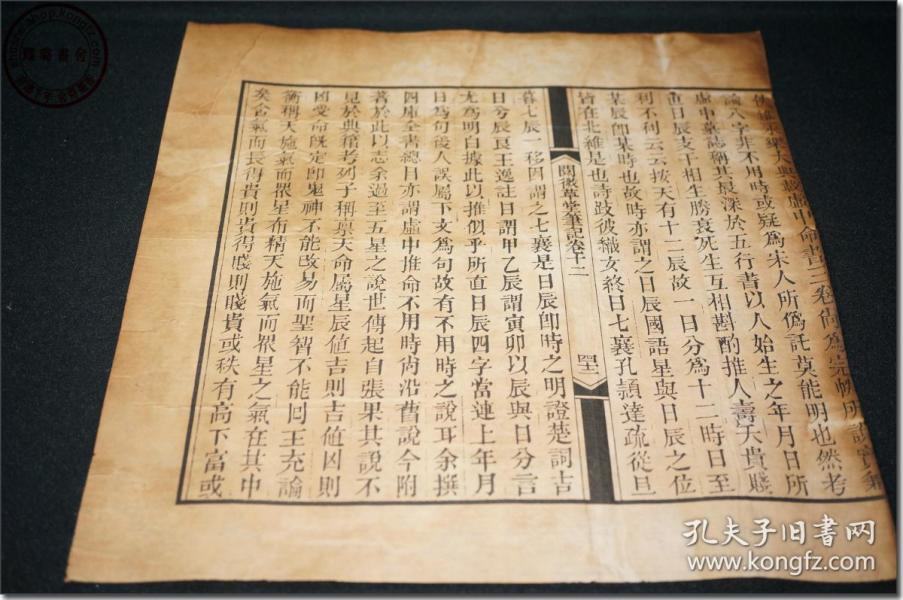 永樂大典
虛中命書三卷尚為完帙所說實兼
論八字非不用時或疑為宋人所偽託莫能明也然考
虛中墓誌稱其最深於五行書以人始生之年月日所
直日辰支干相生勝衰死生互相斟酌推人壽夭貴賤
利不利云云按天有十二辰故一日分為十二時日至
某辰卽某時也故時亦謂之日辰國語星與日辰之位
皆在北維是也詩跂彼織女終日七襄孔穎達疏從旦
閱微草堂筆記卷十二
暮七辰一移因謂之七襄是日辰卽時之明證楚詞吉
日兮辰良王逸註日謂甲乙辰謂寅卯以辰與日分言
尤為明白據此以推似乎所直日辰四字當連上年月
日為句後人誤屬下文為句故有不用時之說耳余撰
四庫全書總目亦謂虛中推命不用時尚沿舊說今附
著於此以志余過至五星之說世傳起自張果其說不
見於典籍考列子稱稟天命屬星辰值吉則吉值凶則
凶受命旣定卽鬼神不能改易而聖智不能囘王充論
衡稱天施氣而眾星布精天施氣而眾星之氣在其中
矣含氣而長得貴則貴得賤則賤貴或秩有高下富或
孔夫子旧书网
www.kongfz.com